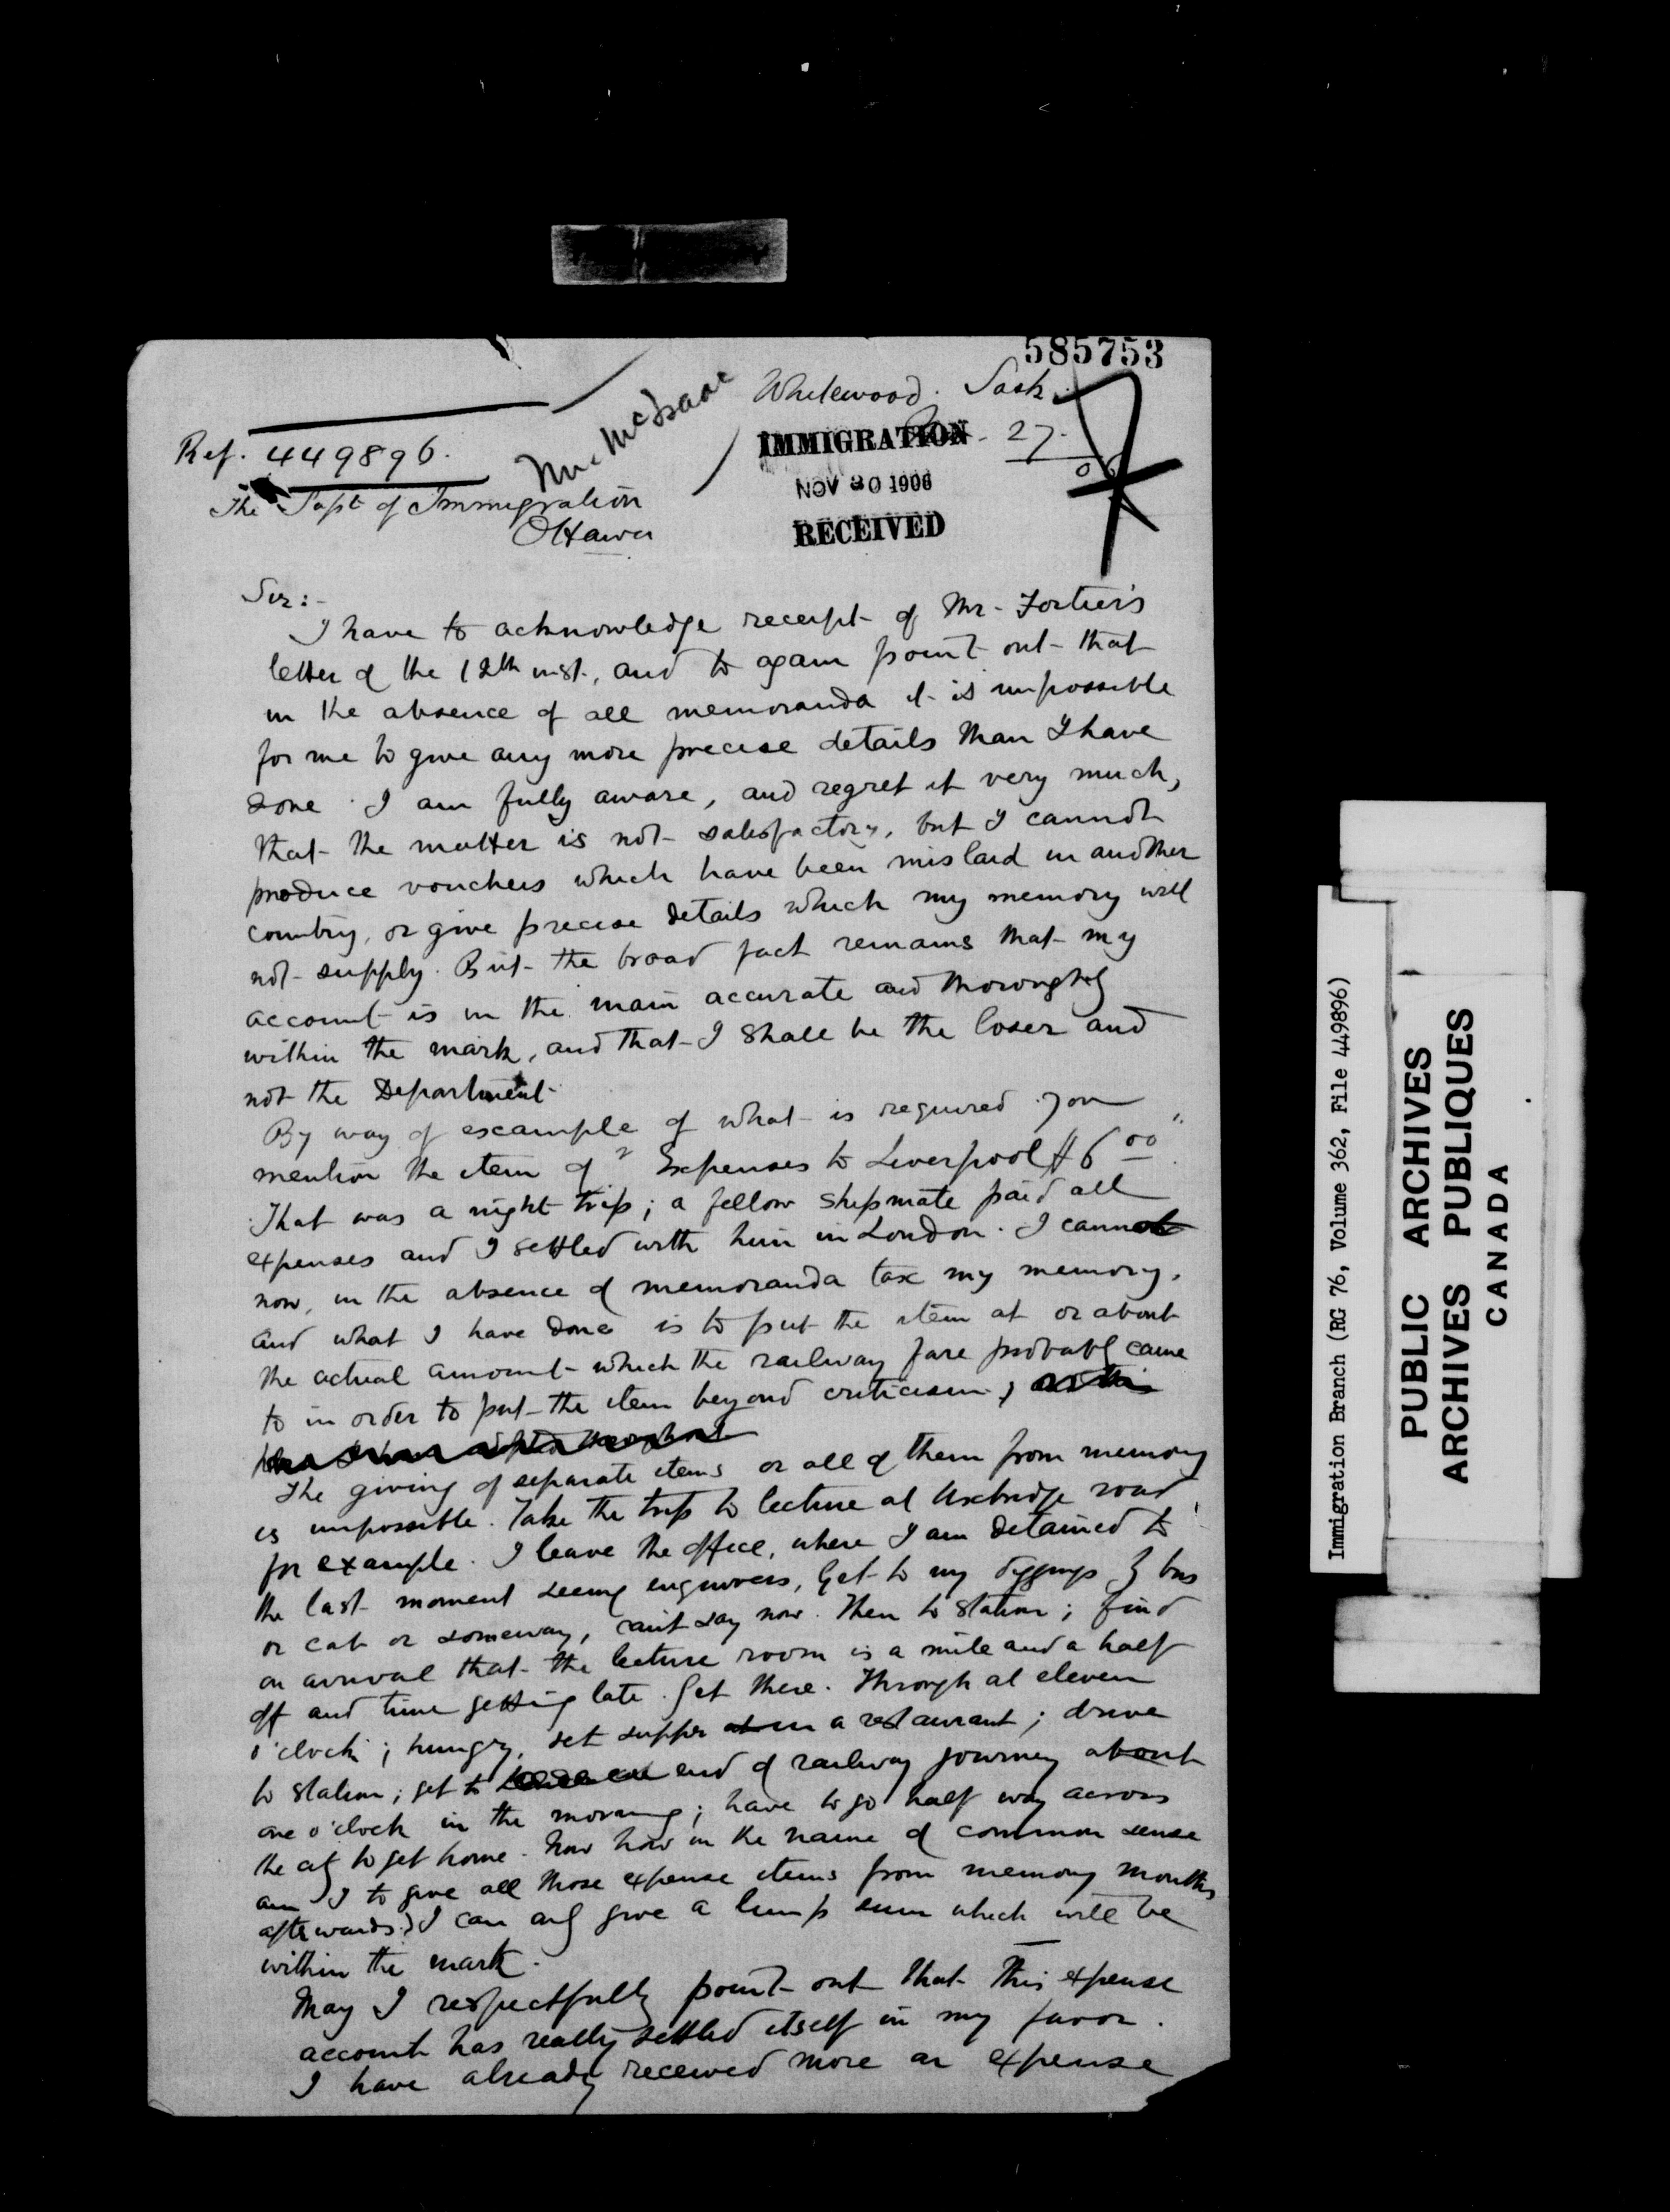 585753
Whitewood. Sask.
27.
06
IMMIGRATION
NOV 30 1906
RECEIVED
Mr McIsaac
Ref. 449896.
The Supt of Immigration
Ottawa
Sir:-
I have to acknowledge receipt of Mr. Fortier's
letter of the 12th inst., and to again point out that
in the absence of all memoranda it is impossible
for me to give any more precise details than I have
done. I am fully aware, and regret it very much,
that the matter is not satisfactory, but I cannot
produce vouchers which have been mislaid in another
country, or give precise details which my memory will
not supply. But the broad fact remains that my
account is in the main accurate and thoroughly
within the mark, and that I shall be the loser and
not the Department.
By way of example of what is required you
mention the item of "Expenses to Liverpool $6.00"
That was a night trip; a fellow shipmate paid all
expenses and I settled with him in London. I cannot
now, in the absence of memoranda tax my memory,
and what I have done is to put the item at or about
the actual amount which the railway fare probably came
to in order to put the item beyond criticism,
The giving of separate items or all of them from memory
is impossible. Take the trip to lecture at Uxbridge road
for example. I leave the office, where I am detained to
the last moment seeing enquirers, get to my diggings by bus
or cab or someway, can't say now. Then to station; find
on arrival that the lecture room is a mile and a half
off and time getting late. Get there. Through at eleven
o'clock; hungry, get supper in a restaurant; drive
to station; get to end of railway journey about
one o'clock in the morning; have to go half way across
the city to get home. Now how in the name of common sense
am I to give all those expense items from memory months
afterwards? I can only give a lump sum which will be
within the mark.
May I respectfully point out that this expense
account has really settled itself in my favor.
I have already received more on expense
Immigration Branch (RG 76, Volume 362, File 449896)
PUBLIC ARCHIVES
ARCHIVES PUBLIQUES
CANADA